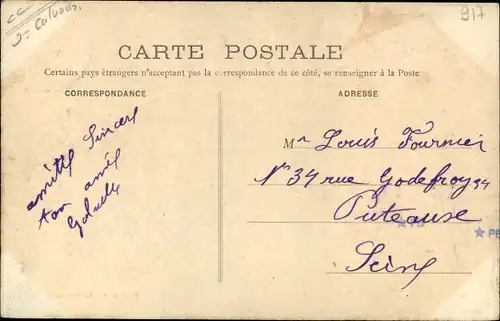 cc
Calvados
917
CARTE POSTALE
Certains pays étrangers n'acceptant pas la correspondance de ce côté, se renseigner à la Poste
CORRESPONDANCE
ADRESSE
amitié Sincère
ton ami
Mr Louis Fournier
N° 34 rue Godefroy 34
Puteause
Seine